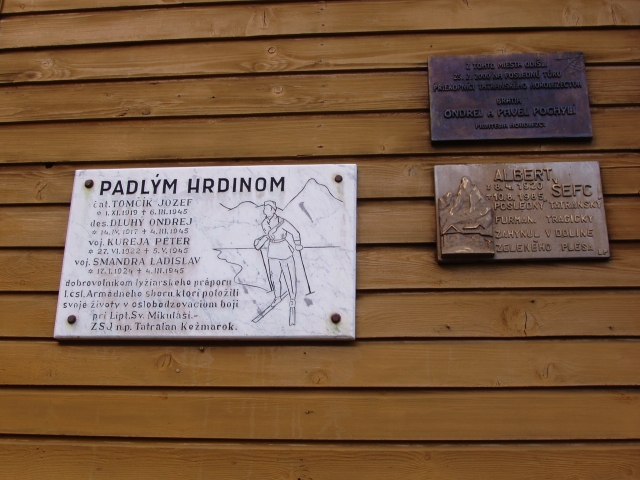 PADLÝM HRDINOM
čat. TOMČÍK JOZEF
* 1.XI.1919 + 6.III.1945
des. DLUHÝ ONDREJ
* 14.IV.1917 + 4.III.1945
voj. KUREJA PETER
* 27.VI.1922 + 5.V.1945
voj. SMANDRA LADISLAV
* 17.I.1924 + 4.III.1945
dobrovoľníkom lyžiarskeho práporu
I.čsl. Armádneho sboru, ktorí položili
svoje životy v oslobodzovacom boji
pri Lipt. Sv. Mikuláši.-
ZSJ n.p. Tatraľan Kežmarok.
Z TOHTO MIESTA ODIŠLI
25. 2. 2000 NA POSLEDNÚ TÚRU
PRIEKOPNÍCI TATRANSKÉHO HOROLEZECTVA
BRATIA
ONDREJ A PAVEL POCHYLÍ
PRIATELIA HOROLEZCI
ALBERT ŠEFC
* 8.4.1920
+ 10.6.1965
POSLEDNÝ TATRANSKÝ
FURMAN. TRAGICKY
ZAHYNUL V DOLINE
ZELENÉHO PLESA